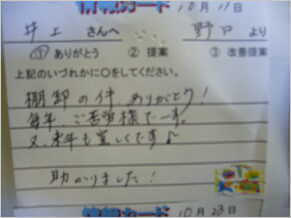 情報カード 10月11日
井上 さんへ 野口 より
① ありがとう ② 提案 ③ 改善提案
上記のいづれかに○をしてください。
棚卸の件、ありがとう!
毎年、ご苦労様でーす。
又、来年も宜しくです♪
助かりました!
情報カード 10月23日